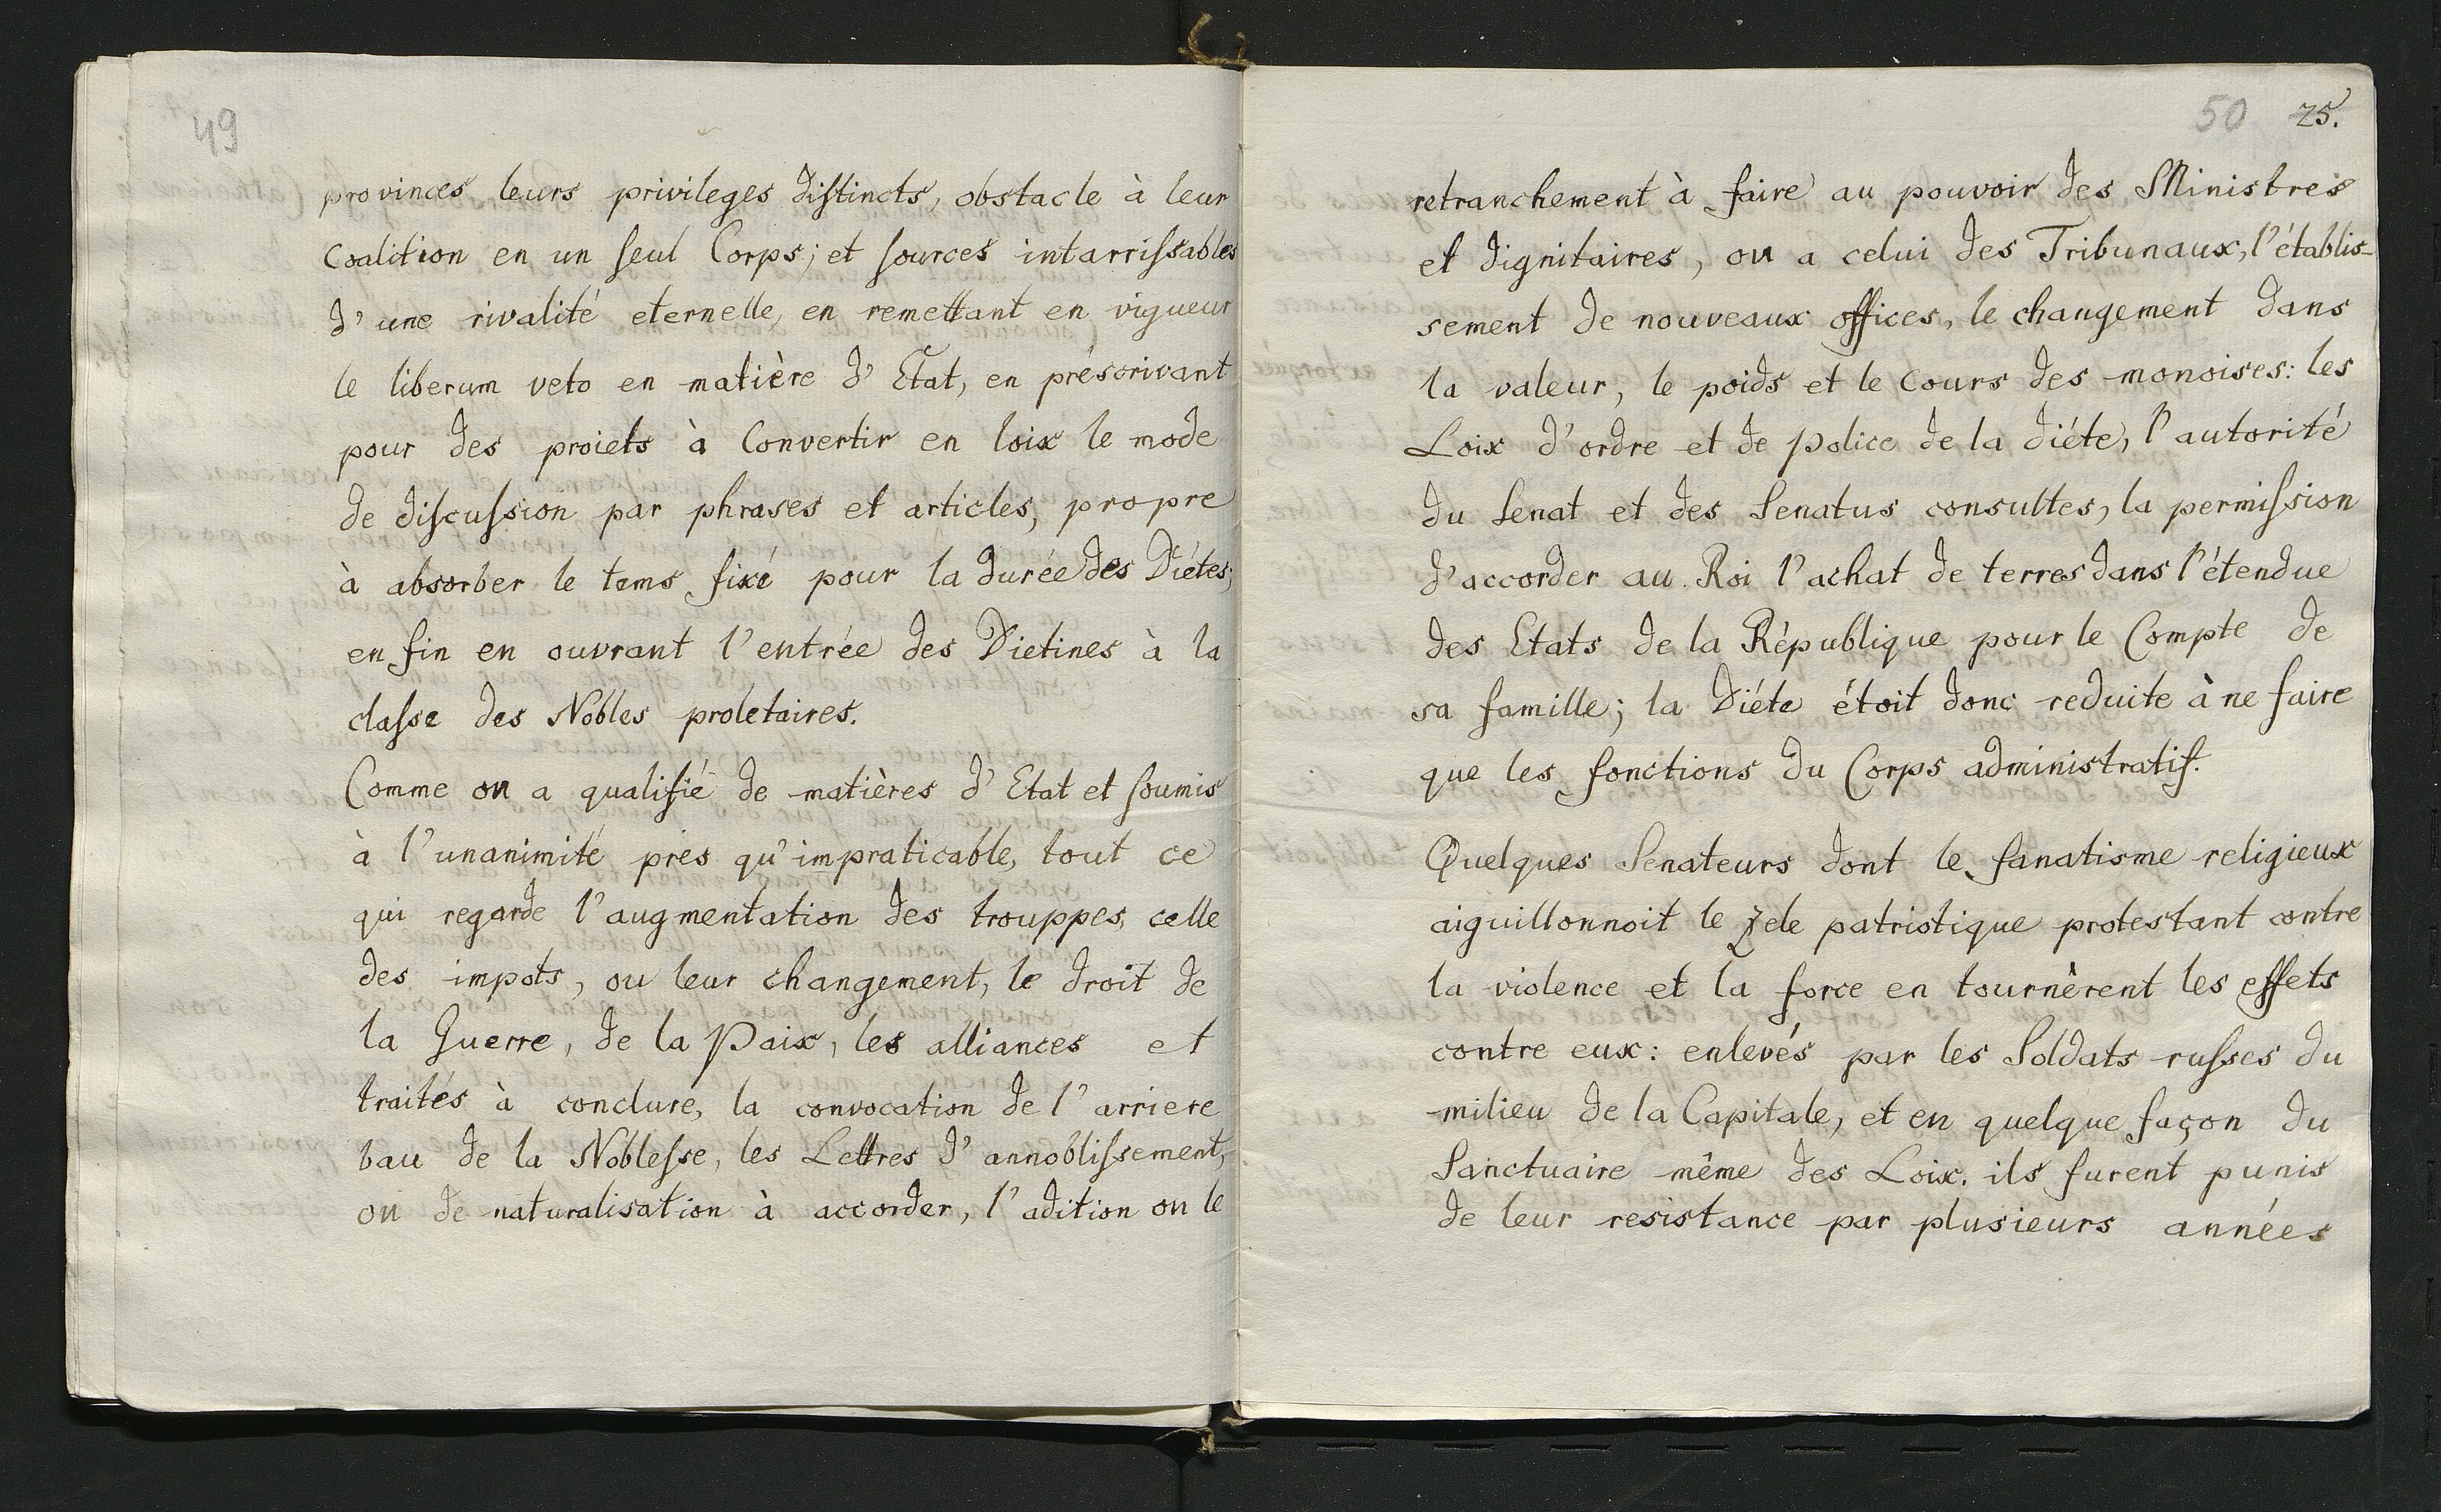 49
provinces leurs privileges distincts, obstacle à leur
Coalition en un seul Corps; et sources intarrissables
d'une rivalité eternelle, en remettant en vigueur
le liberum veto en matière d'Etat, en présorivant
pour des proiets à Convertir en loix le mode
de discussion par phrases et articles, propre
à absorber le tems fixé pour la durée des Diétes;
en fin en ouvrant l'entrée des Dietines à la
classe des Nobles proletaires.
Comme on a qualifié de matières d'Etat et soumis
à l'unanimité prés qu'impraticable, tout ce
qui regarde l'augmentation des trouppes, celle
des impots, ou leur changement, le droit de
la Guerre, de la Paix, les alliances et
traités à conclure, la convocation de l'arriere
bau de la Noblesse, les Lettres d'annoblissement,
ou de naturalisation à accorder, l'adition on le
50 25.
retranchement à faire au pouvoir des Ministres
et dignitaires, ou a celui des Tribunaux, l'établis-
sement de nouveaux offices, le changement dans
la valeur, le poids et le Cours des monoises: les
Loix d'ordre et de police de la diéte, l'autorité
du Senat et des Senatus consultes, la permission
d'accorder au Roi l'achat de terres dans l'étendue
des Etats de la République pour le Compte de
sa famille; la Diéte étoit donc reduite à ne faire
que les fonctions du Corps administratif.
Quelques Senateurs dont le fanatisme religieux
aiguillonnoit le zele patriotique protestant contre
la violence et la force en tournèrent les effets
contre eux: enlevés par les Soldats russes du
milieu de la Capitale, et en quelque façon du
Sanctuaire même des Loix. ils furent punis
de leur resistance par plusieurs années